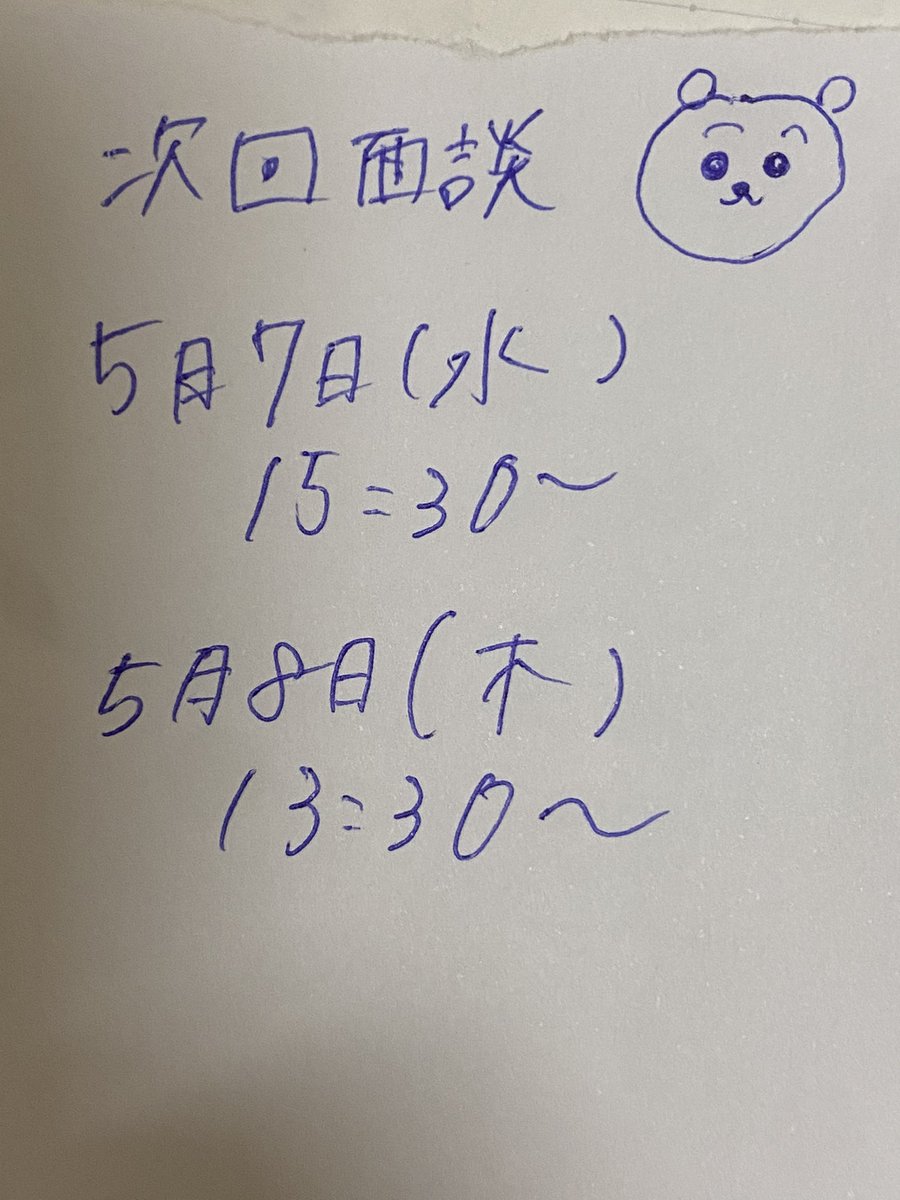 次回面談
5月7日(水)
15:30~
5月8日(木)
13:30~